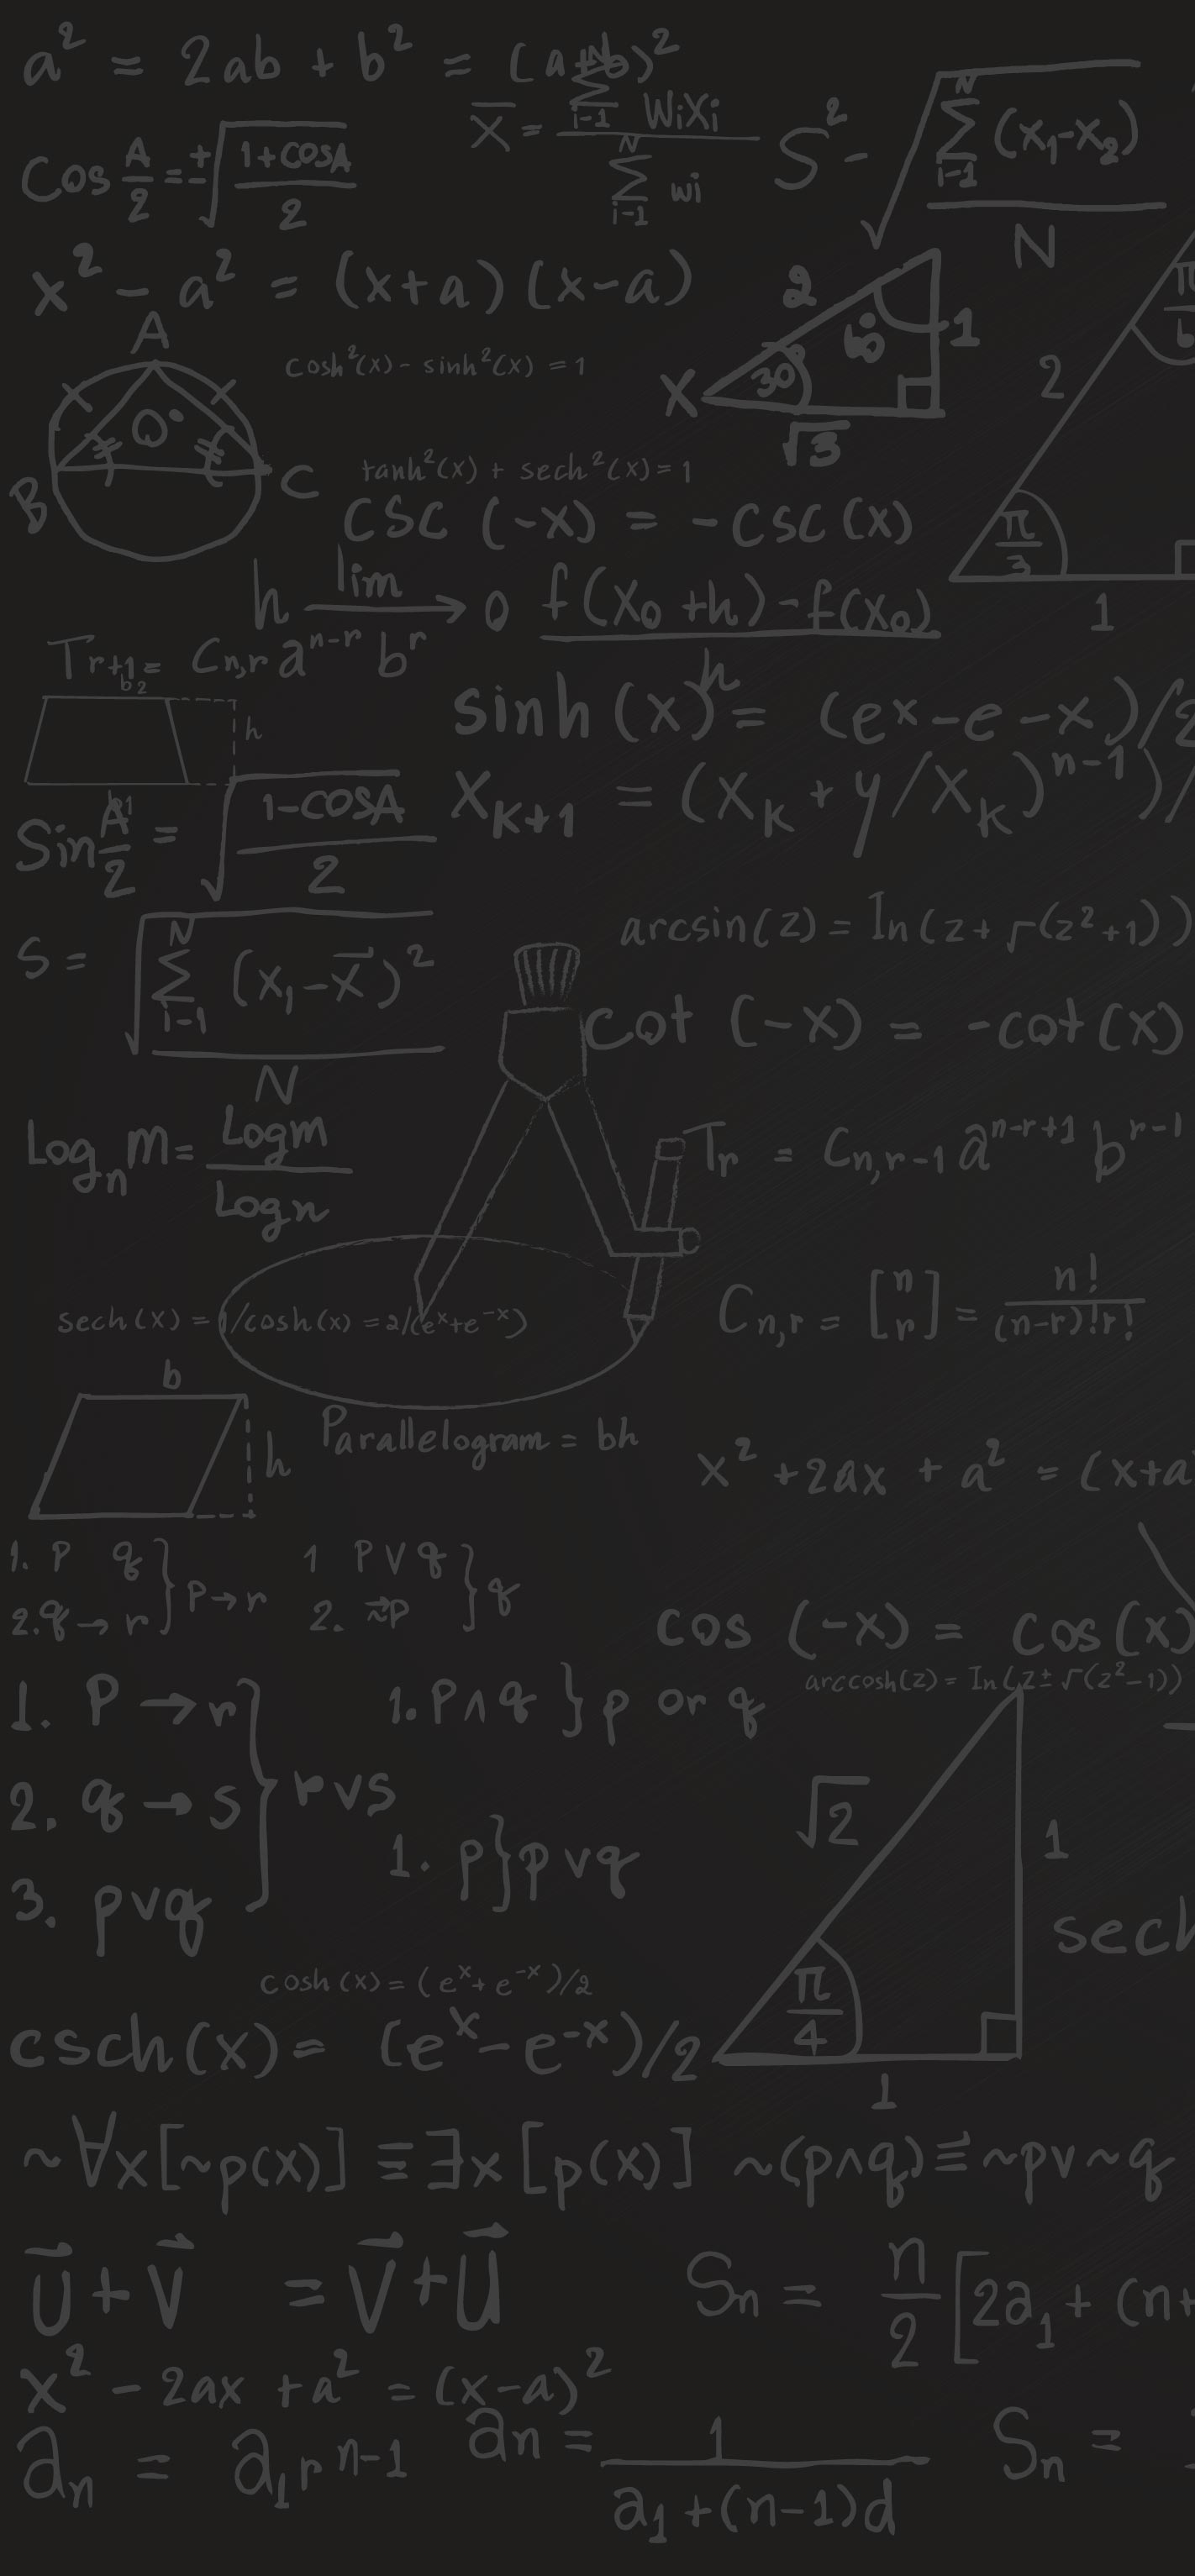 a² = 2ab + b² = (a+b)²
X̄ = ∑ᴺᵢ₋₁ WiXi / ∑ᴺᵢ₋₁ wi
S² - √∑ᴺᵢ₋₁ (x₁-x₂) / N
Cos A/2 = ±√1+COSA / 2
x² - a² = (x+a)(x-a)
2
60°
1
30°
X
√3
π/6
2
π/3
1
A
O°
B
C
cosh²(x) - sinh²(x) = 1
tanh²(x) + sech²(x) = 1
CSC (-x) = -CSC (x)
h lim → 0 f(x₀ +h) - f(x₀) / h
Tr+1 = Cn,r aⁿ⁻ʳ bʳ
b₂
h
b₁
sinh (x) = (ex - e - x)/2
XK+1 = (XK + y/XK)ⁿ⁻¹)/
Sin A/2 = √1-COSA / 2
arcsin(z) = In(z+ √(z²+1))
S = √∑ᴺᵢ₋₁ (x₁-x̄)² / N
Cot (-x) = -cot(x)
Logn m = Logm / Logn
Tr = Cn,r-1 aⁿ⁻ʳ⁺¹ bʳ⁻¹
sech(x) = 1/cosh(x) = 2/(eˣ+e⁻ˣ)
Cn,r = [n r] = n! / (n-r)!r!
b
h
Parallelogram = bh
x² + 2ax + a² = (x+a
1. P q
2. q → r } p → r
1 P V q
2. ~p } q
cos (-x) = cos(x)
arccosh(z) = In(z± √(z²-1))
1. P → r
2. q → s } r v s
3. p v q
1. P ∧ q } p or q
1. p } p v q
√2
1
π/4
1
sech
cosh (x) = (eˣ+ e⁻ˣ)/2
csch(x) = (eˣ- e⁻ˣ)/2
~∀x[~p(x)] ≡ ∃x [p(x)] ~(p∧q) ≡ ~pv~q
U⃗ + V⃗ = V⃗ + U⃗
Sn = n/2 [2a₁ + (n+
x² - 2ax + a² = (x-a)²
an = a₁rⁿ⁻¹
an = 1 / a₁+(n-1)d
Sn =